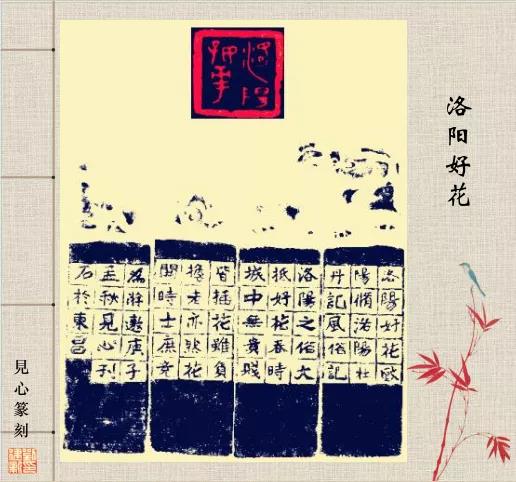 洛阳好花
洛陽好花歐
陽脩洛陽牡
丹記風俗記
洛陽之俗大
抵好花春時
城中無貴賤
皆插花雖負
擔者亦然花
開時士庶競
為遊遨庚子
孟秋見心刊
石於東昌
見心篆刻